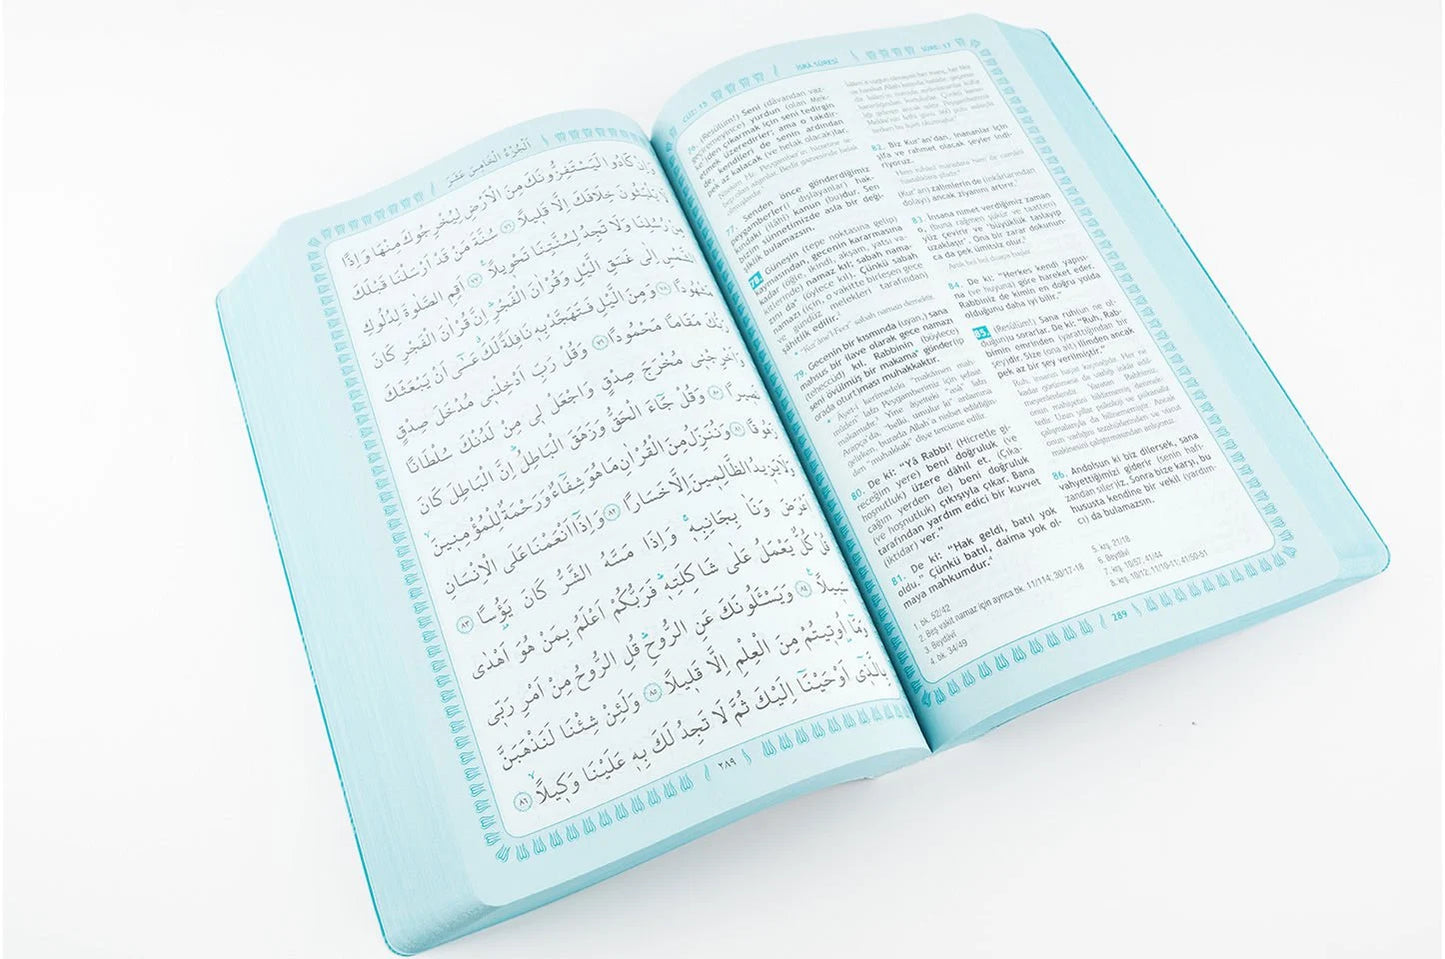 اَلْجُزْءُ الْخَامِسَ عَشَرَ
وَاِنْ كَادُوا لَيَسْتَفِزُّونَكَ مِنَ الْاَرْضِ لِيُخْرِجُوكَ مِنْهَا وَاِذًا
لَا يَلْبَثُونَ خِلَافَكَ اِلَّا قَلٖيلًا ٧٦ سُنَّةَ مَنْ قَدْ اَرْسَلْنَا قَبْلَكَ
مِنْ رُسُلِنَا وَلَا تَجِدُ لِسُنَّتِنَا تَحْوٖيلًا ٧٧ اَقِمِ الصَّلٰوةَ لِدُلُوكِ
الشَّمْسِ اِلٰى غَسَقِ الَّيْلِ وَقُرْاٰنَ الْفَجْرِ اِنَّ قُرْاٰنَ الْفَجْرِ كَانَ
مَشْهُودًا ٧٨ وَمِنَ الَّيْلِ فَتَهَجَّدْ بِهٖ نَافِلَةً لَكَ عَسٰٓى اَنْ يَبْعَثَكَ
رَبُّكَ مَقَامًا مَحْمُودًا ٧٩ وَقُلْ رَبِّ اَدْخِلْنٖى مُدْخَلَ صِدْقٍ
وَاَخْرِجْنٖى مُخْرَجَ صِدْقٍ وَاجْعَلْ لٖى مِنْ لَدُنْكَ سُلْطَانًا
نَصٖيرًا ٨٠ وَقُلْ جَٓاءَ الْحَقُّ وَزَهَقَ الْبَاطِلُ اِنَّ الْبَاطِلَ كَانَ
زَهُوقًا ٨١ وَنُنَزِّلُ مِنَ الْقُرْاٰنِ مَا هُوَ شِفَٓاءٌ وَرَحْمَةٌ لِلْمُؤْمِنٖينَ
وَلَا يَزٖيدُ الظَّالِمٖينَ اِلَّا خَسَارًا ٨٢ وَاِذَٓا اَنْعَمْنَا عَلَى الْاِنْسَانِ
اَعْرَضَ وَنَاٰ بِجَانِبِهٖ وَاِذَا مَسَّهُ الشَّرُّ كَانَ يَؤُسًا ٨٣
قُلْ كُلٌّ يَعْمَلُ عَلٰى شَاكِلَتِهٖ فَرَبُّكُمْ اَعْلَمُ بِمَنْ هُوَ اَهْدٰى
سَبٖيلًا ٨٤ وَيَسْـَٔلُونَكَ عَنِ الرُّوحِ قُلِ الرُّوحُ مِنْ اَمْرِ رَبّٖى
وَمَٓا اُوتٖيتُمْ مِنَ الْعِلْمِ اِلَّا قَلٖيلًا ٨٥ وَلَئِنْ شِئْنَا لَنَذْهَبَنَّ
بِالَّذٖٓى اَوْحَيْنَٓا اِلَيْكَ ثُمَّ لَا تَجِدُ لَكَ بِهٖ عَلَيْنَا وَكٖيلًا ٨٦
٢٨٩
CÜZ: 15
İSRÂ SÛRESİ
SÛRE: 17
76. (Resûlüm!) Seni (dâvandan vaz-
geçiremeyince) yurdun (olan Mek-
ke'den çıkarmak için seni tedirgin
etmek üzeredirler; ama o takdir-
de, kendileri de senin ardından
pek az kalacak (ve helak olacak)lar.
77. Senden önce gönderdiğimiz
peygamberler(i dışlayanlar) hak-
kındaki (ilâhî) kanun (bu)dur. Sen
bizim sünnetimizde asla bir deği-
şiklik bulamazsın.
78. Güneşin (tepe noktasına gelip)
kaymasından, gecenin kararmasına
kadar (öğle, ikindi, akşam, yatsı va-
kitlerinde) namaz kıl; sabah nama-
zını da² (öylece kıl). Çünkü sabah
namazı (için, o vakitte birleşen gece
ve gündüz melekleri tarafından)
şâhitlik edilir.³
* "Kur'âne'l-Fecr" sabah namazı demektir.
79. Gecenin bir kısmında (uyan,) sana
mahsus bir ilave olarak gece namazı
(teheccüd) kıl. Rabbinin (böylece)
seni övülmüş bir makama* gönderip
(orada oturt)ması muhakkaktır.
80. De ki: "Yâ Rabbi! (Hicretle gi-
receğim yere) beni doğruluk (ve
hoşnutluk) üzere dâhil et. (Çıka-
cağım yerden de) beni doğruluk
(ve hoşnutluk) çıkışıyla çıkar. Bana
tarafından yardım edici bir kuvvet
(iktidar) ver."
81. De ki: "Hak geldi, batıl yok
oldu." Çünkü batıl, daima yok ol-
maya mahkumdur.⁴
1. bk. 52/42
2. Beş vakit namaz için ayrıca bk. 11/114; 30/17-18
3. Beydâvî
4. bk. 34/49
82. Biz Kur'an'dan, inananlar için
şifa ve rahmet olacak şeyler indi-
riyoruz.
(Kur'an) zalimlerin de (inkârlarından
dolayı) ancak ziyanını artırır.
83. İnsana nimet verdiğimiz zaman
(buna rağmen şükür ve taatten)
yüz çevirir ve 'büyüklük taslayıp
uzaklaşır'. Ona bir zarar dokunun-
ca da pek ümitsiz olur.
84. De ki: "Herkes kendi yapısı-
na (ve huyuna) göre hareket eder.
Rabbiniz de kimin en doğru yolda
olduğunu daha iyi bilir."
85. (Resûlüm!) Sana ruhtan (ne ol-
duğunu) sorarlar. De ki: "Ruh, Rab-
bimin emrinden (yarattığı)ndan bir
şeydir. Size (ona ait) ilimden ancak
pek az bir şey verilmiştir."
86. Andolsun ki biz dilersek, sana
vahyettiğimizi gideri (senin hafı-
zandan siler)iz. Sonra bize karşı, bu
hususta kendine bir vekil (yardım-
cı) da bulamazsın.
5. krş. 21/18
6. Beydâvî
7. krş. 10/57; 41/44
8. krş. 10/12; 11/10-11; 41/50-51
289